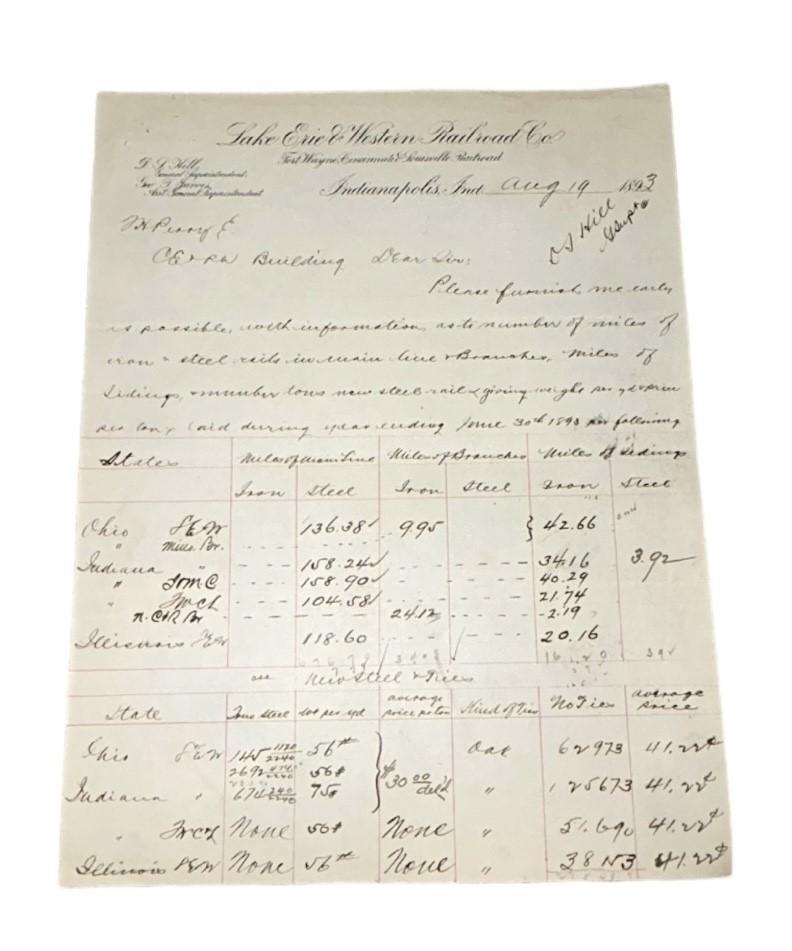 Lake Erie & Western Railroad Co.
Fort Wayne, Cincinnati & Louisville Railroad
General Superintendent.
Asst. General Superintendent.
Indianapolis, Ind. Aug 19 1893
Hill
Building Dear Sir:
Please furnish me early
as possible, with information, as to number of miles of
iron & steel rails in main line & Branches, Miles of
Sidings, & number tons new steel rail & giving weight per yd &
per ton, laid during year ending June 30th 1893 per following
States Miles of Main Line Miles of Branches Miles of Sidings
Iron Steel Iron Steel Iron Steel
Ohio LEW 136.38 9.95 } 42.66
" Br.
Indiana " 158.24 34.16 3.92
" 158.90 40.29
" 104.58 21.74
Br 24.12 2.19
Illinois LEW 118.60 20.16
New Steel & Ties
State Tons steel per yd average price per ton Kind of Ties No Ties average price
Ohio LEW 145 1120/2240 56# Oak 62973 41.22¢
2692 56# } $30 00 del'd
Indiana " 75# " 125673 41.22¢
" None 56# None " 51.690 41.22¢
Illinois LEW None 56# None " 38153 41.22¢